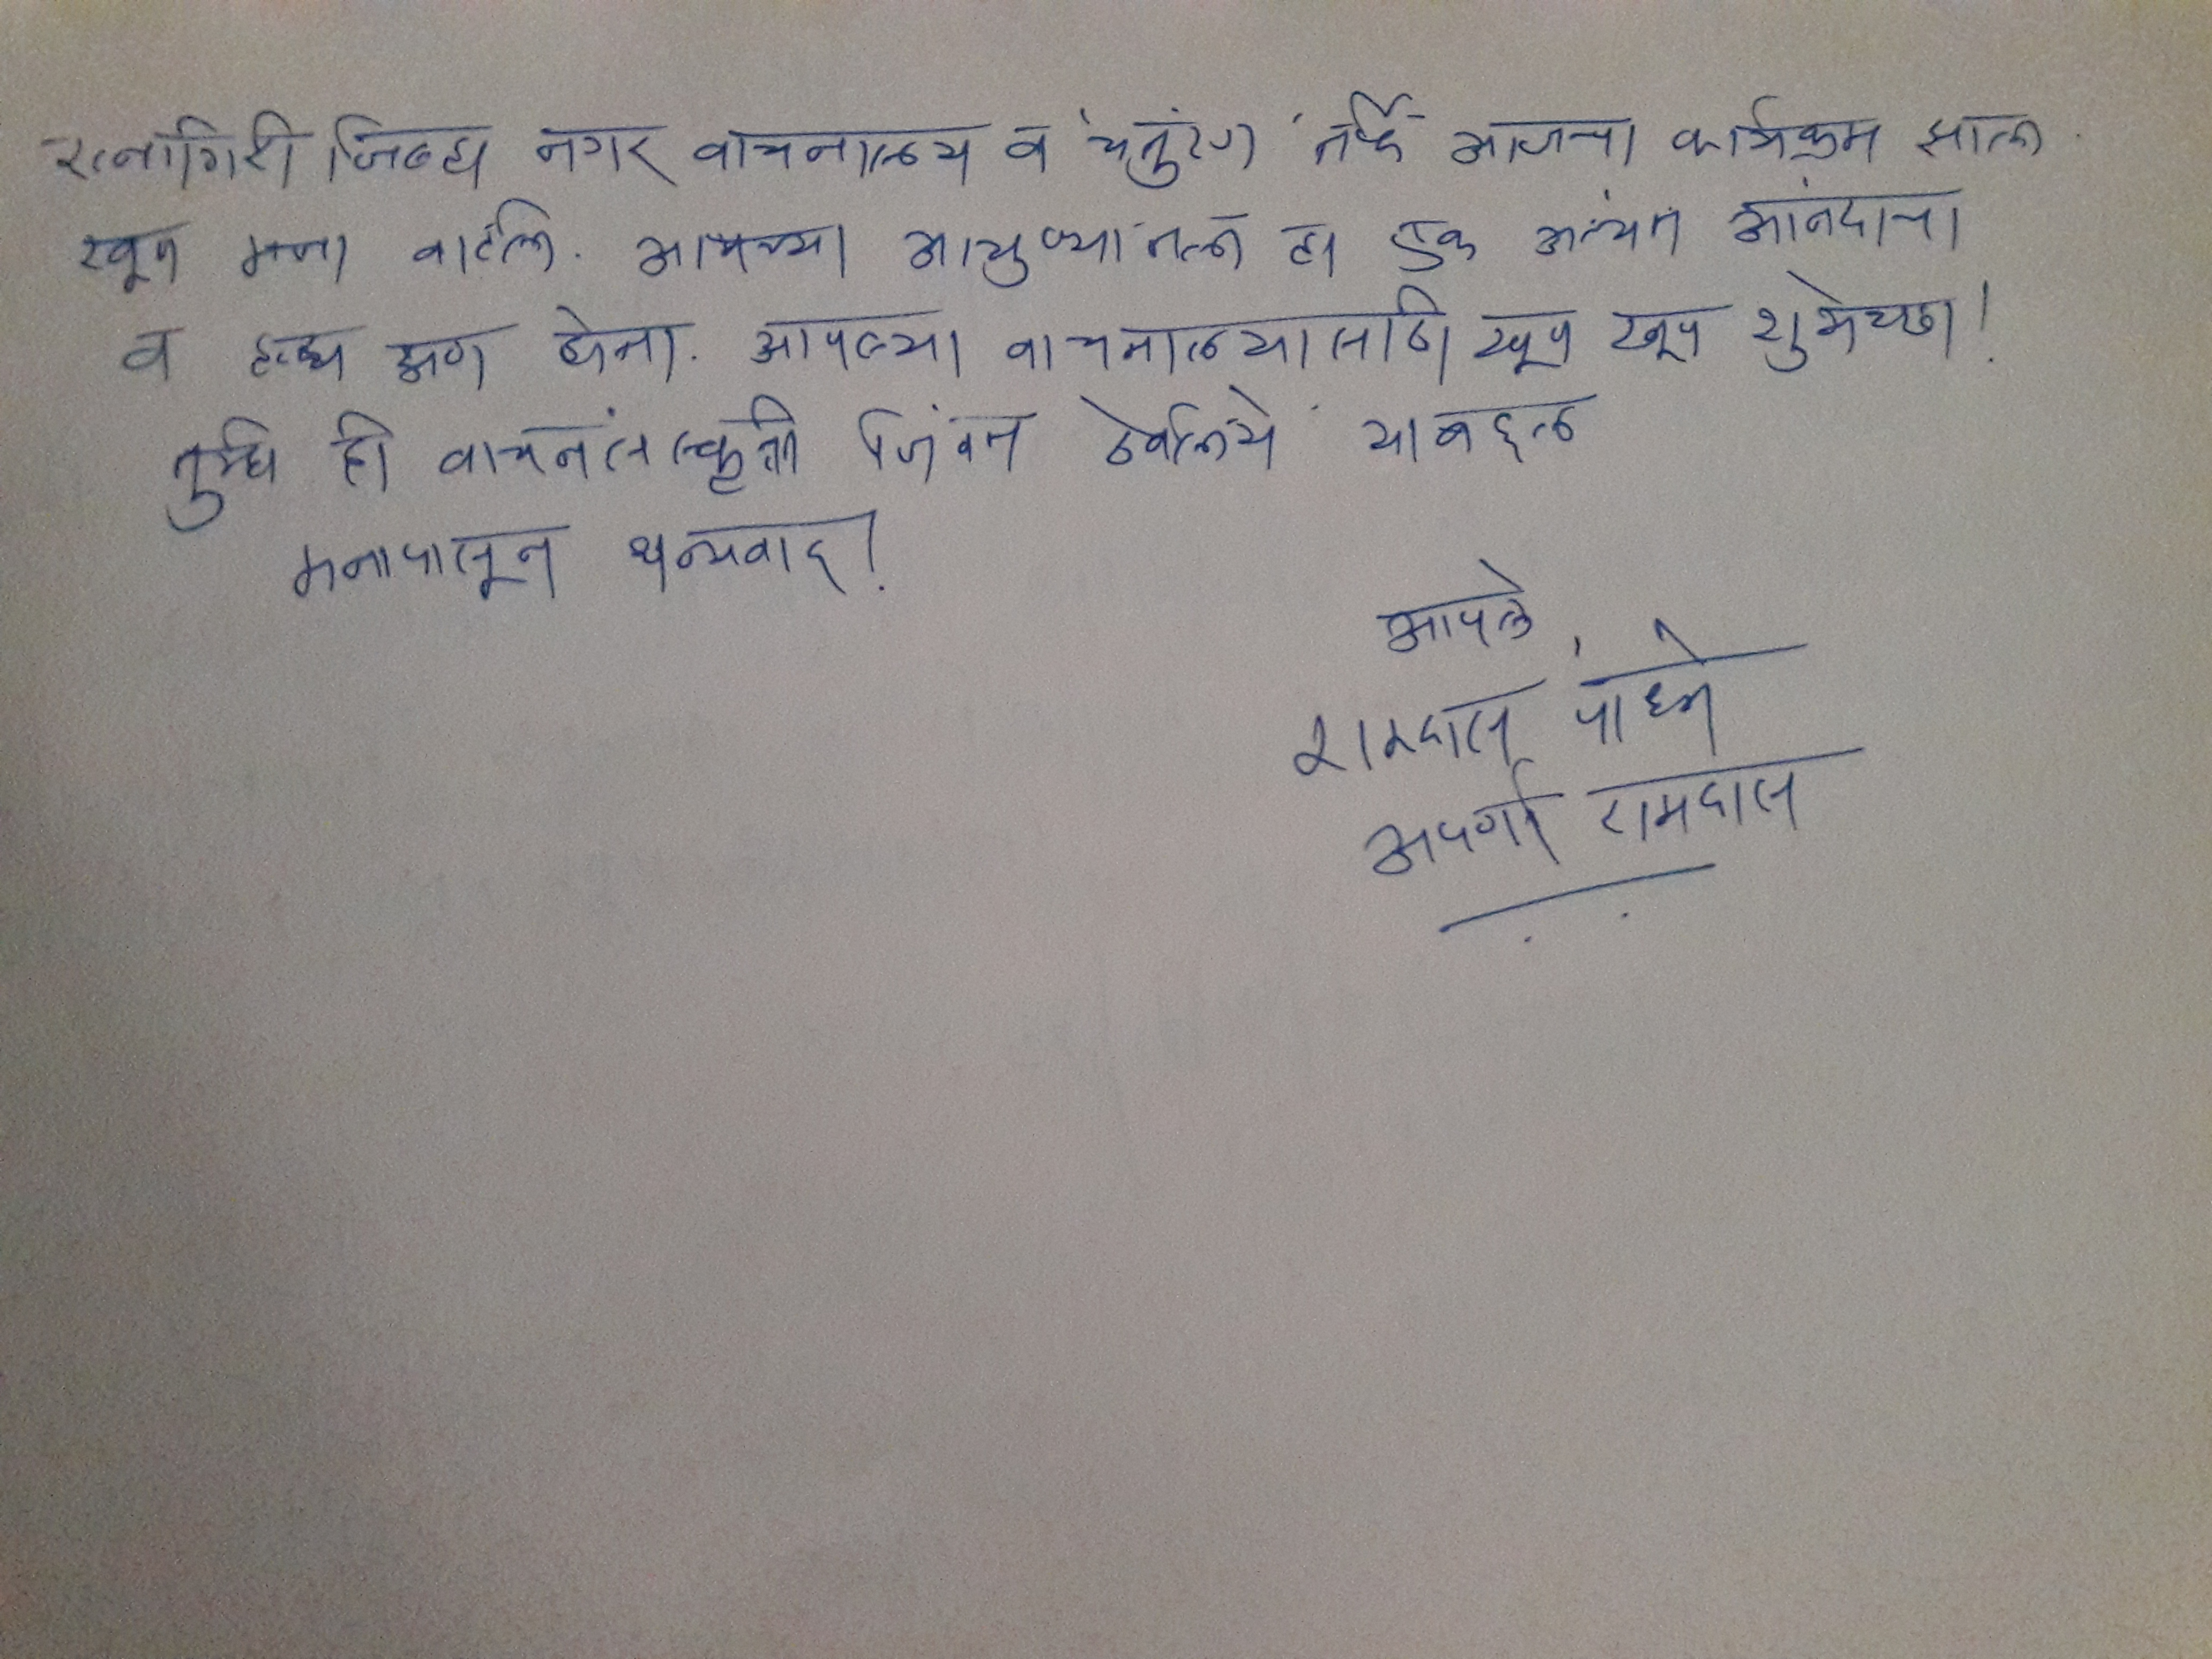 रत्नागिरी जिल्हा नगर वाचनालय व 'चतुरंग' तर्फे आजचा कार्यक्रम झाला.
खूप मजा वाटली. आमच्या आयुष्यातला हा एक अत्यंत आनंदाचा
व हृद्य क्षण होता. आपल्या वाचनालयासाठी खूप खूप शुभेच्छा!
तुम्ही ही वाचनसंस्कृती जिवंत ठेवलिये याबद्दल
मनापासून धन्यवाद!
आपले,
रामदास पाध्ये
अपर्णा रामदास